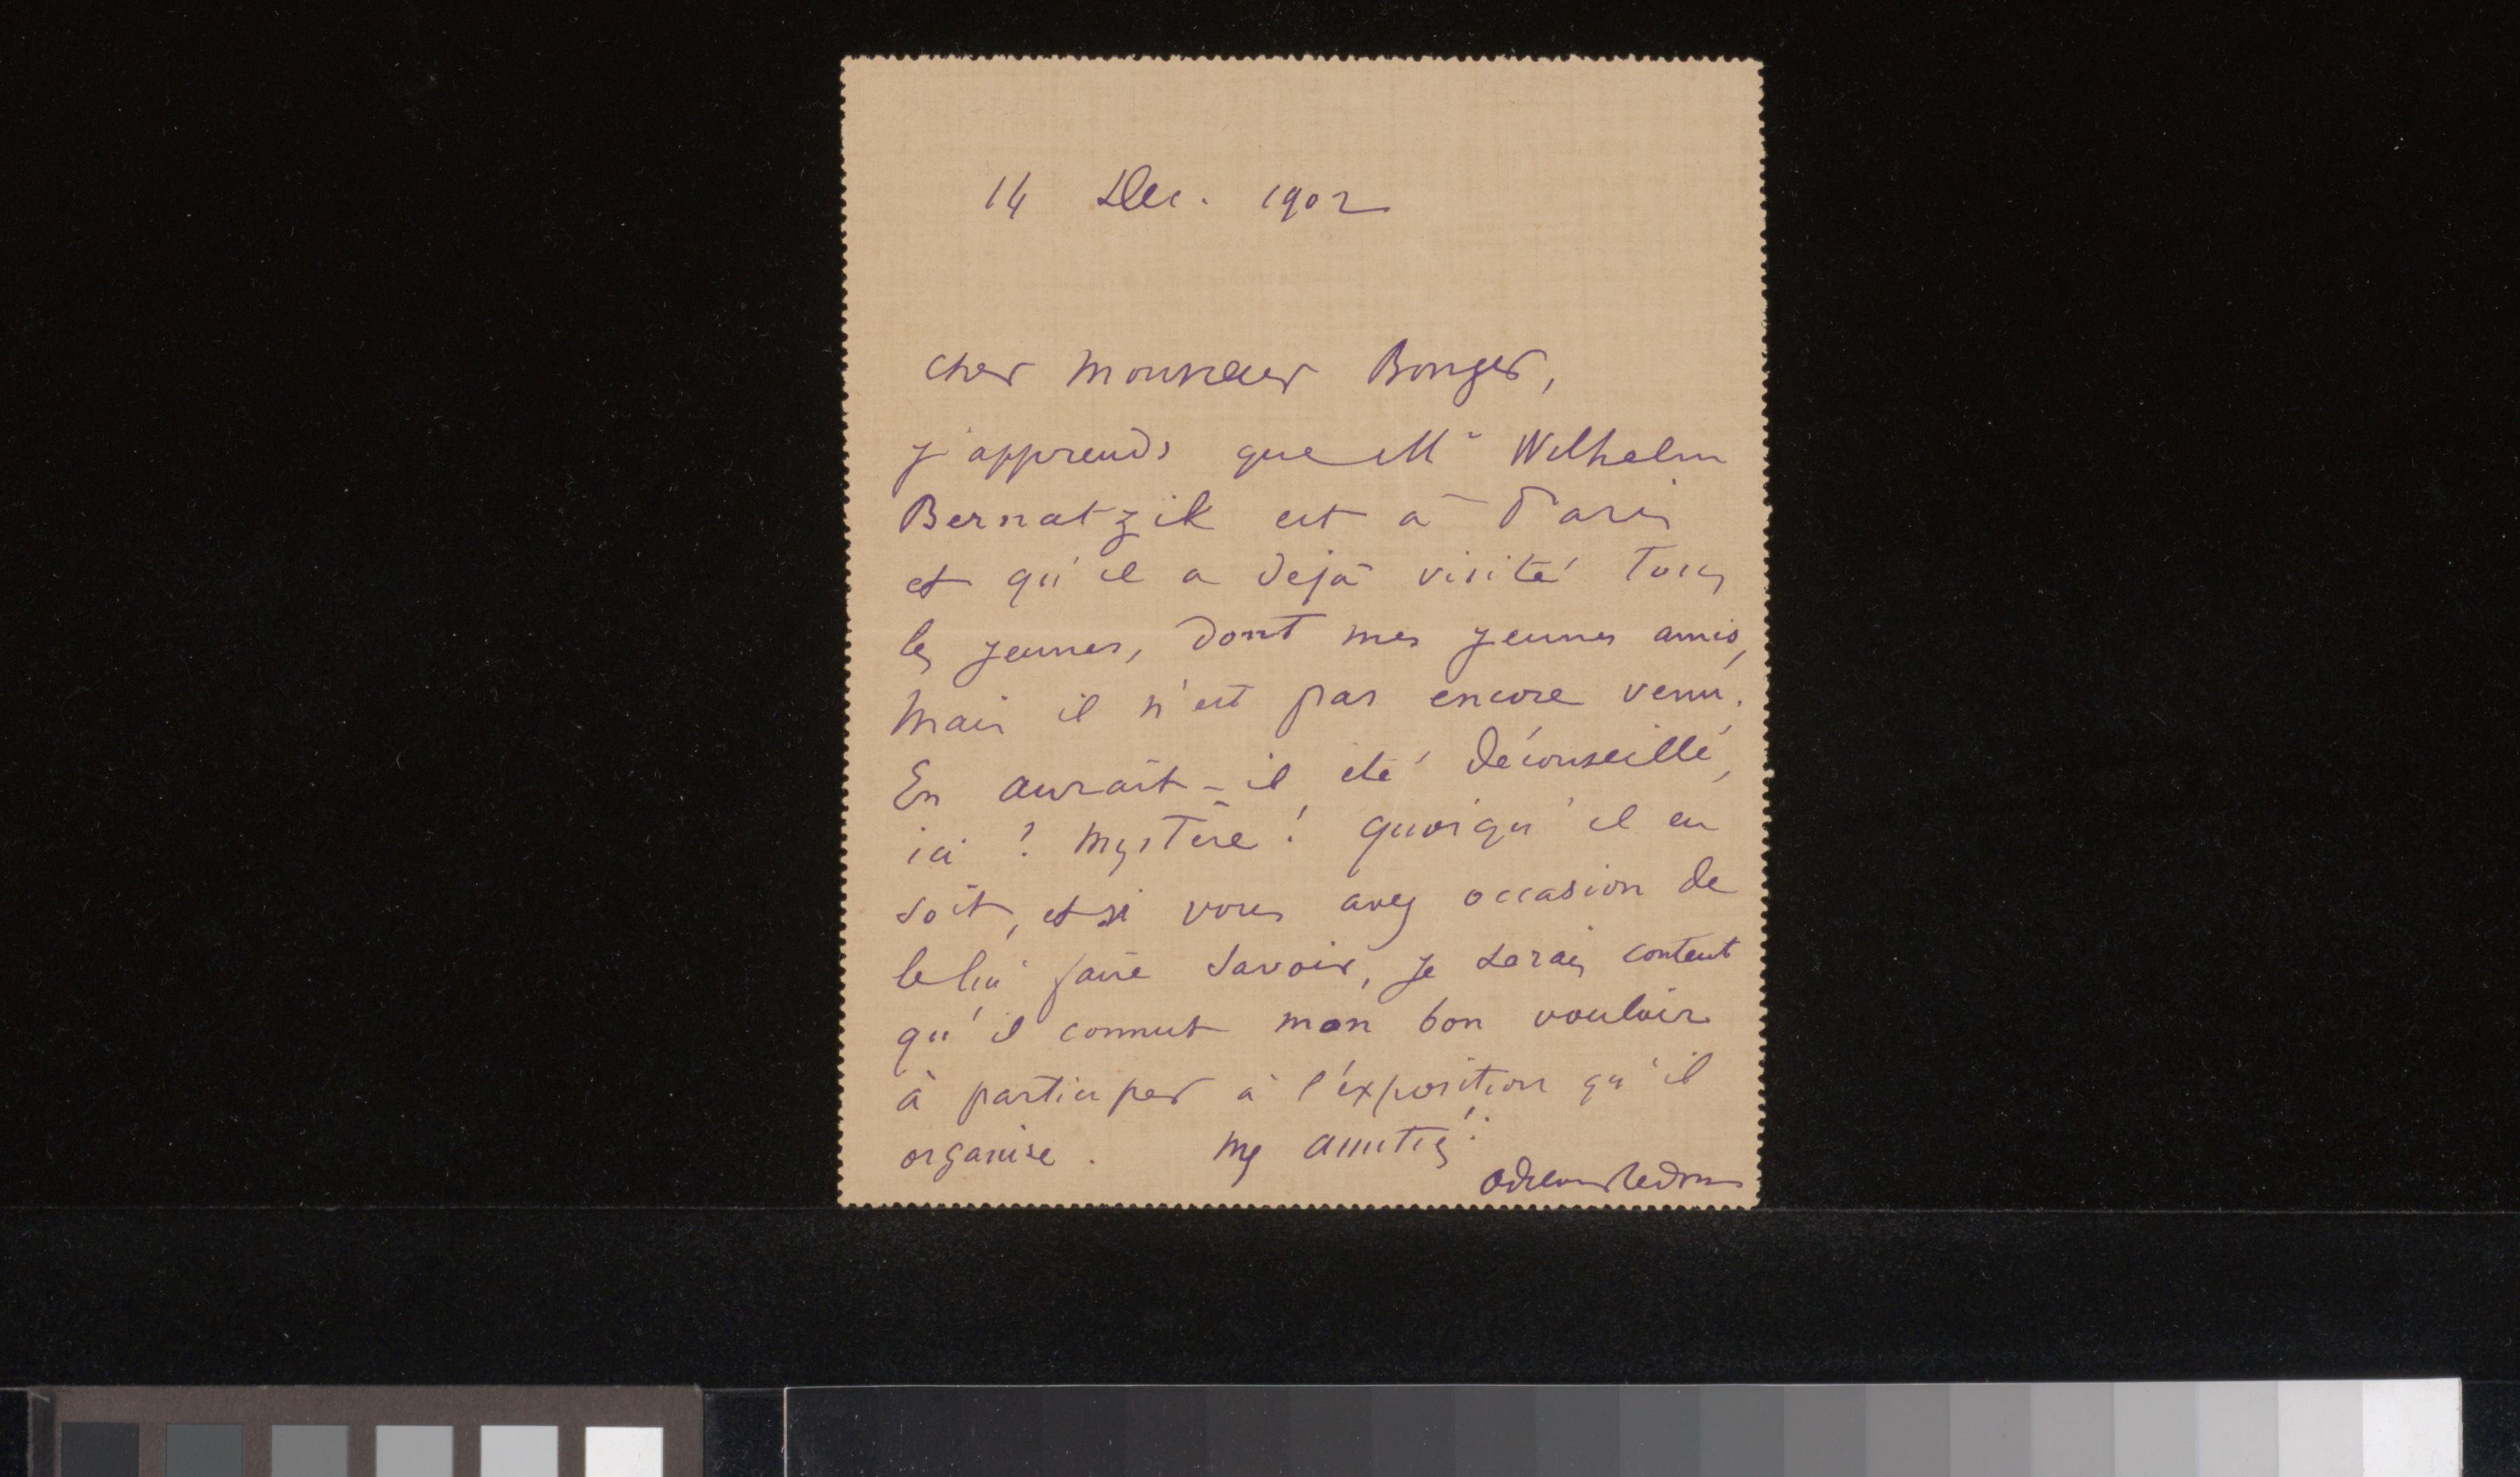 14 Dec. 1902
cher Monsieur Bonger,
j'apprends que Mr Wilhelm
Bernatzik est à Paris
et qu'il a déjà visité tous
les jeunes, dont mes jeunes amis,
mais il n'est pas encore venu.
En aurait-il été déconseillé,
ici ? mystère ! quoiqu'il en
soit, et si vous avez occasion de
le lui faire savoir, je serais content
qu'il connut mon bon vouloir
à participer à l'éxposition qu'il
organise. mes amitiés.
Odilon Redon